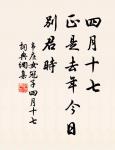 四月十七
正是去年今日
別君時
韋庄女冠子四月十七
詞典網集